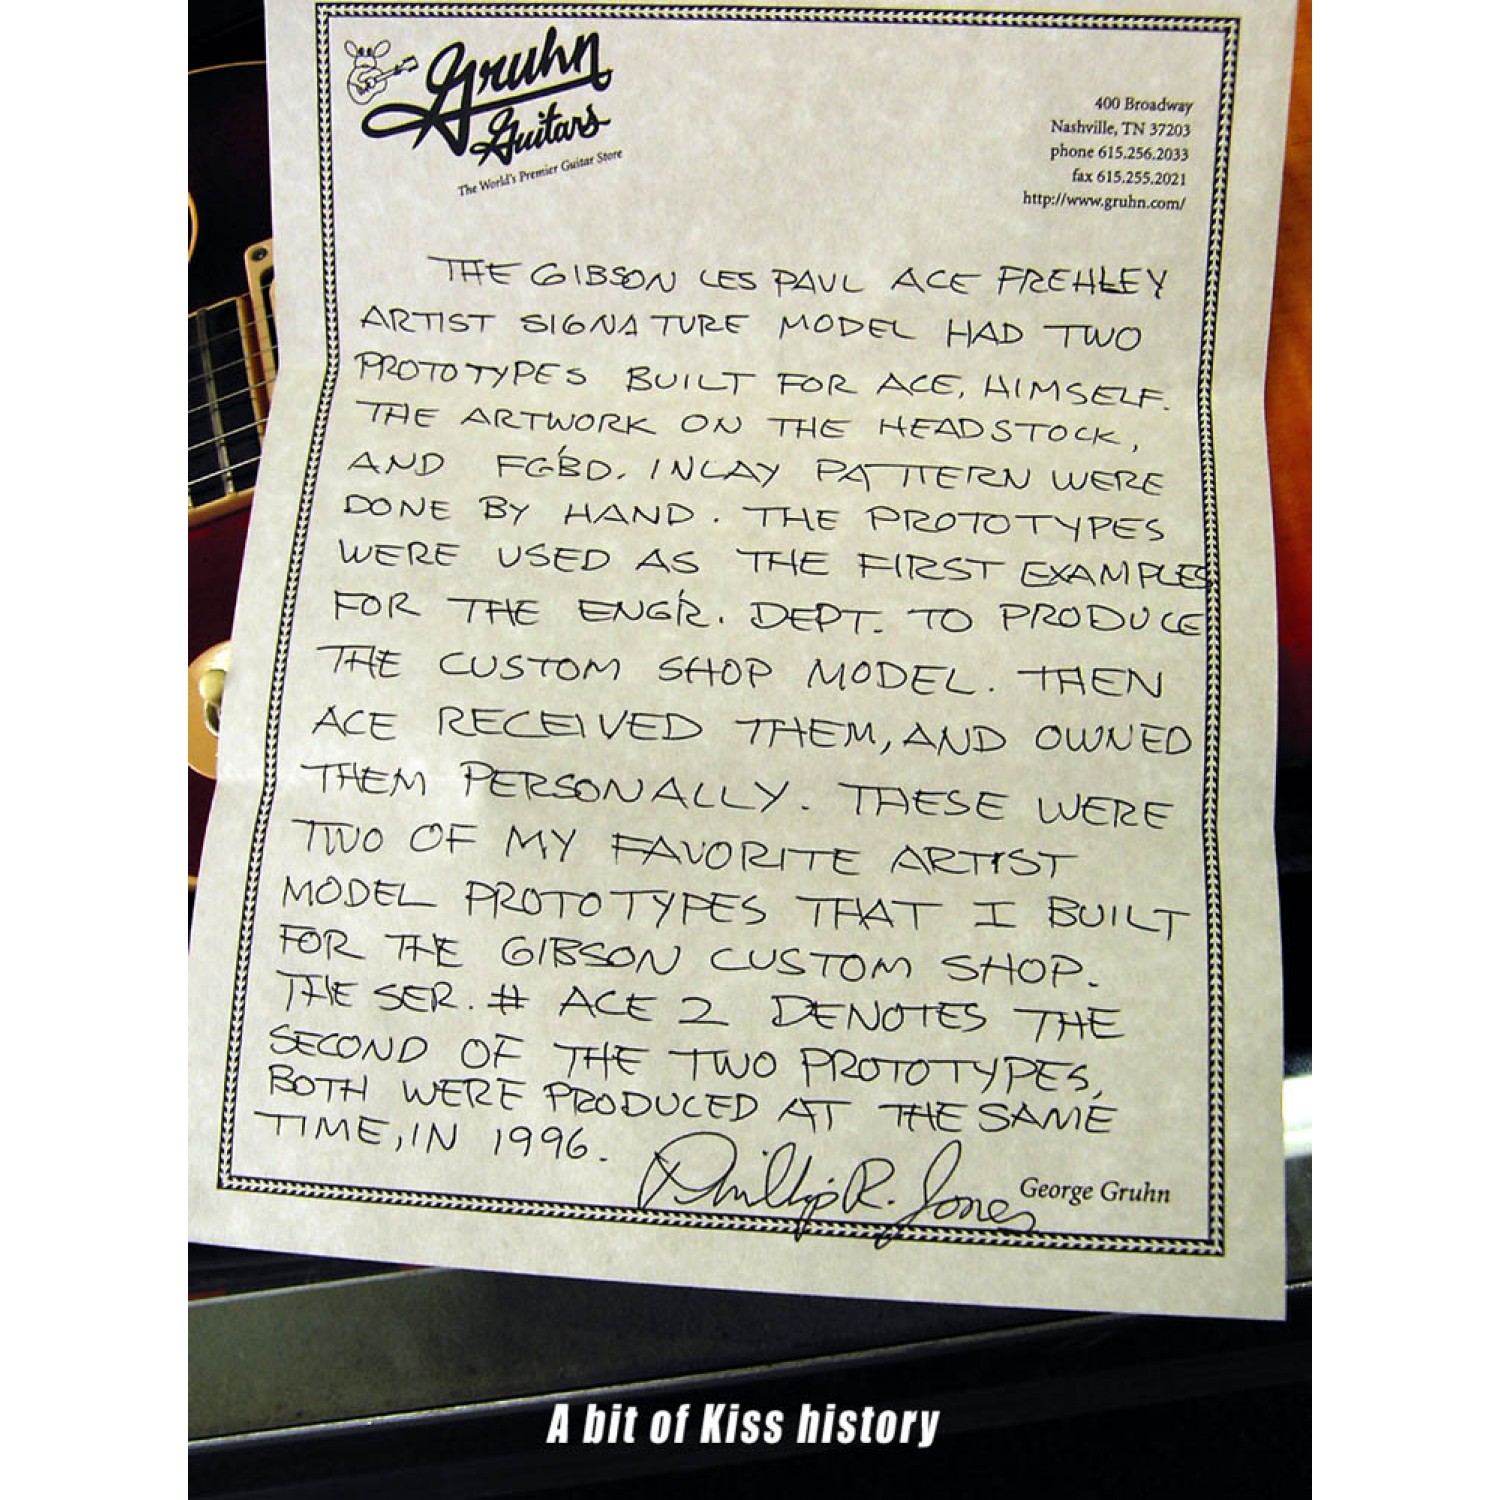 Gruhn
Guitars
The World's Premier Guitar Store
400 Broadway
Nashville, TN 37203
phone 615.256.2033
fax 615.255.2021
http://www.gruhn.com/
THE GIBSON LES PAUL ACE FREHLEY
ARTIST SIGNATURE MODEL HAD TWO
PROTOTYPES BUILT FOR ACE, HIMSELF.
THE ARTWORK ON THE HEADSTOCK,
AND FG'BD. INLAY PATTERN WERE
DONE BY HAND. THE PROTOTYPES
WERE USED AS THE FIRST EXAMPLES
FOR THE ENG'R. DEPT. TO PRODUCE
THE CUSTOM SHOP MODEL. THEN
ACE RECEIVED THEM, AND OWNED
THEM PERSONALLY. THESE WERE
TWO OF MY FAVORITE ARTIST
MODEL PROTOTYPES THAT I BUILT
FOR THE GIBSON CUSTOM SHOP.
THE SER. # ACE 2 DENOTES THE
SECOND OF THE TWO PROTOTYPES,
BOTH WERE PRODUCED AT THE SAME
TIME, IN 1996.
Phillip R. Jones
George Gruhn
A bit of Kiss history